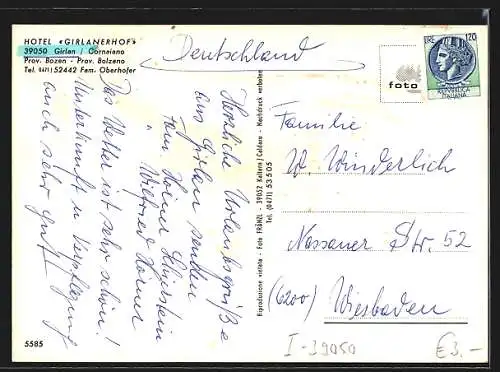 HOTEL «GIRLANERHOF»
39050 Girlan / Cornaiano
Prov. Bozen - Prov. Bolzano
Tel. (0471) 52442 Fam. Oberhofer
Deutschland
Herzliche Urlaubsgrüße
aus Girlan senden
Fam. Heiner
u. Wilfried
Das Wetter ist sehr schön!
Unterkunft u. Verpflegung
auch sehr gut!
5585
Riproduzione vietata - Foto FRÄNZL - 39052 Kaltern / Caldaro - Nachdruck verboten
Tel. (0471) 53505
foto
LIRE 120
REPUBBLICA
ITALIANA
Familie
W. Winderlich
Nassauer Str. 52
(6200) Wiesbaden
I-39050
€3.-